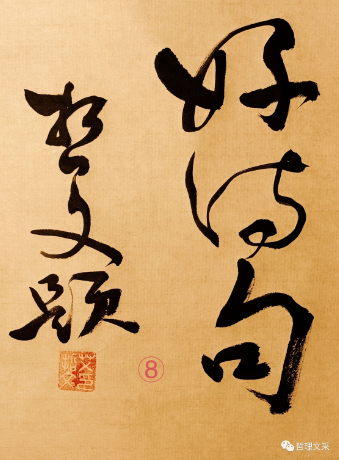 好诗句
哲文题
⑧
哲理文采